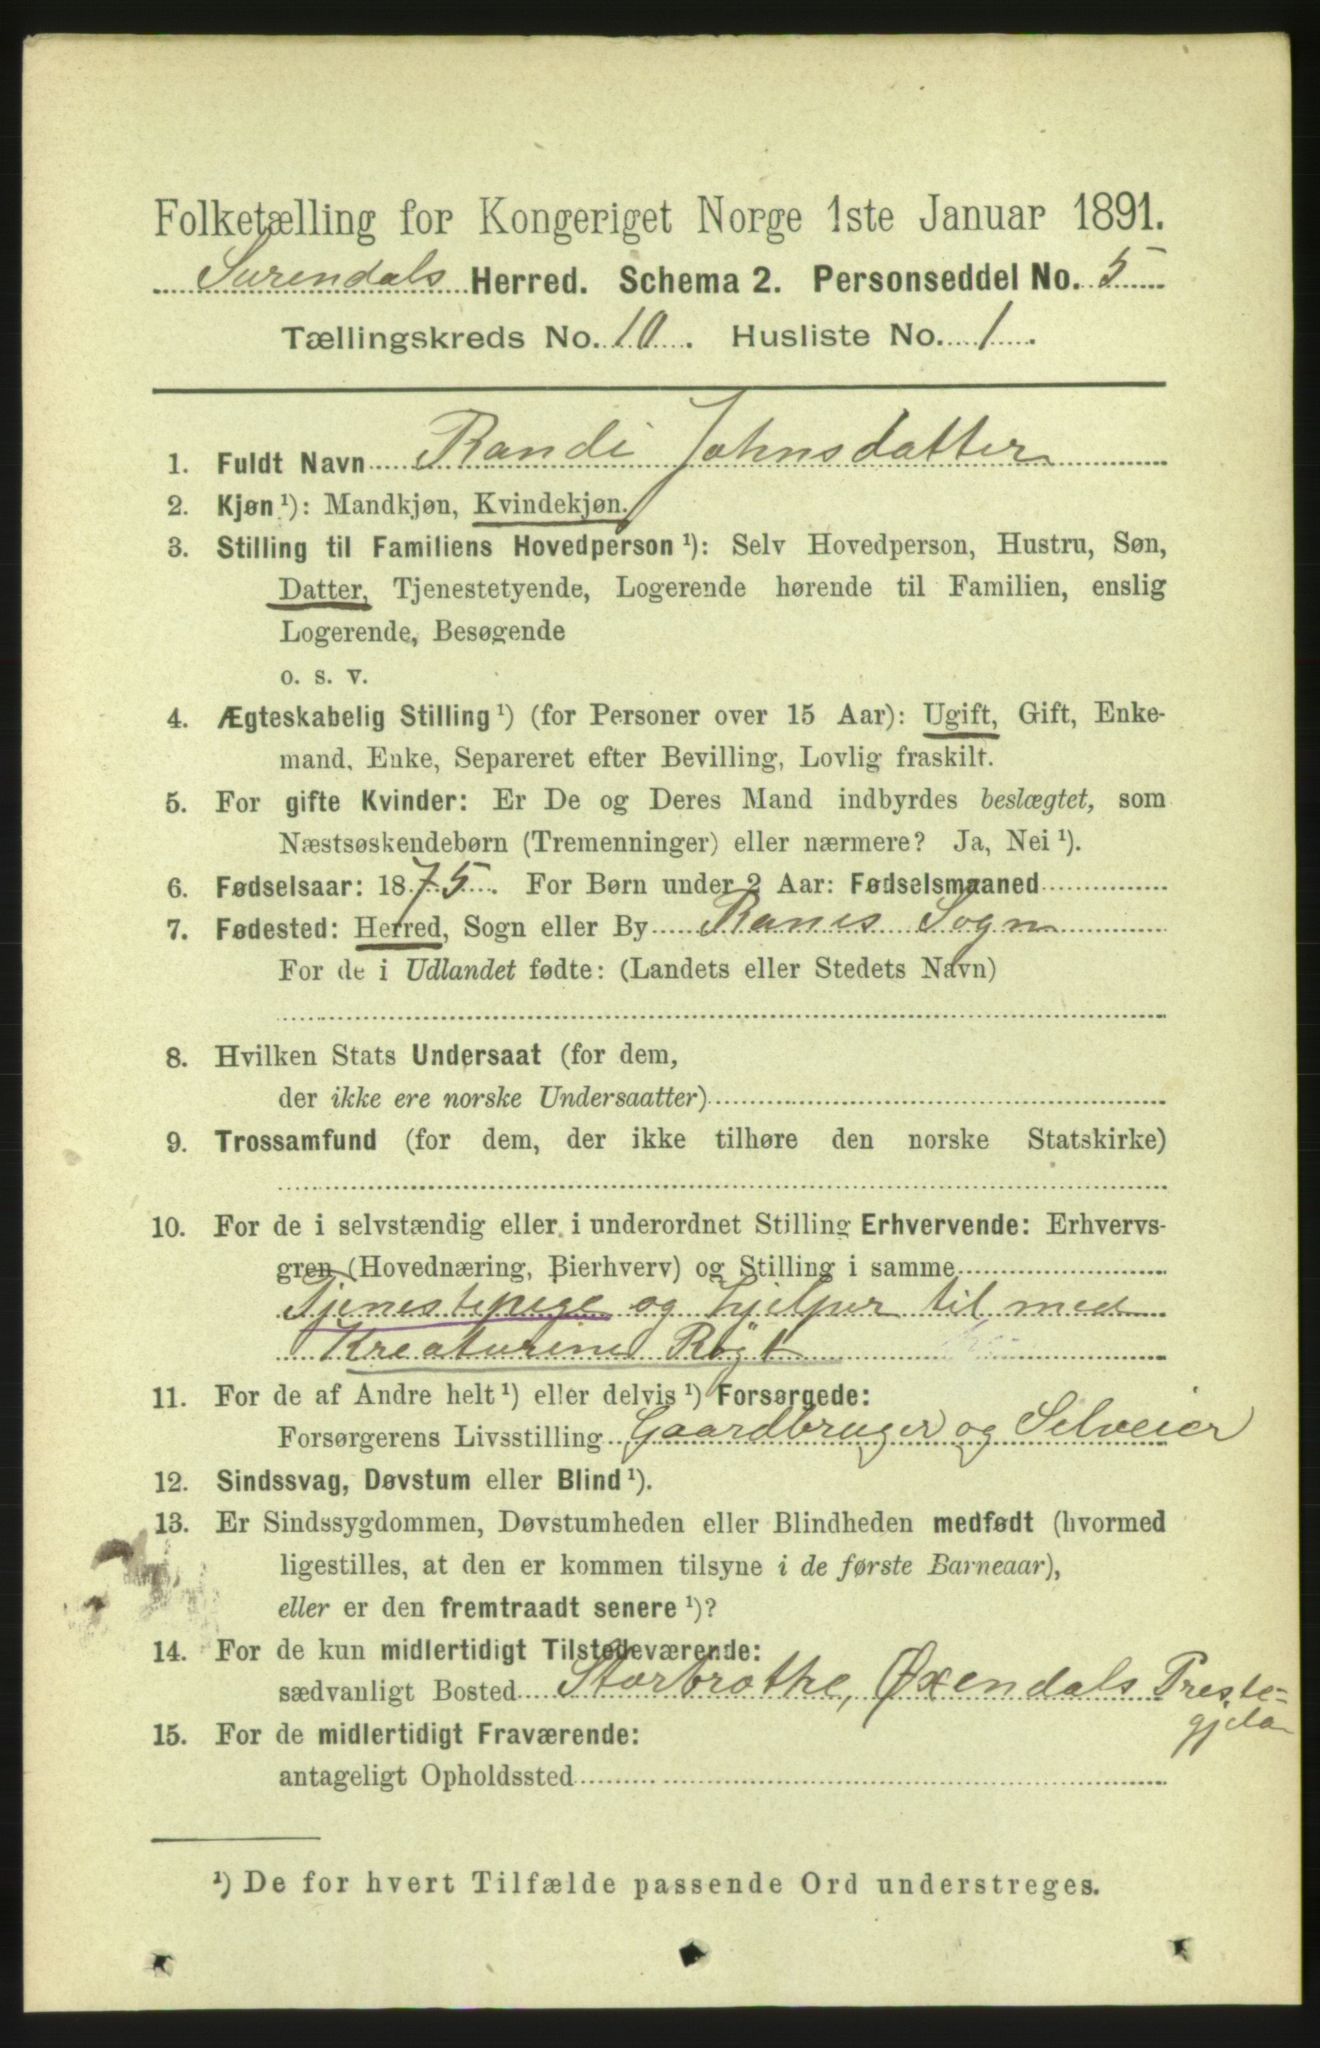 Folketælling for Kongeriget Norge 1ste Januar 1891.
Surendals Herred. Schema 2. Personseddel No. 5
Tællingskreds No. 10. Husliste No. 1.
1. Fuldt Navn Randi Johnsdatter
2. Kjøn ¹): Mandkjøn, Kvindekjøn.
3. Stilling til Familiens Hovedperson ¹): Selv Hovedperson, Hustru, Søn,
Datter, Tjenestetyende, Logerende hørende til Familien, enslig
Logerende, Besøgende
o. s. v.
4. Ægteskabelig Stilling ¹) (for Personer over 15 Aar): Ugift, Gift, Enke-
mand, Enke, Separeret efter Bevilling, Lovlig fraskilt.
5. For gifte Kvinder: Er De og Deres Mand indbyrdes beslægtet, som
Næstsøskendebørn (Tremenninger) eller nærmere? Ja, Nei ¹).
6. Fødselsaar: 1875. For Børn under 2 Aar: Fødselsmaaned
7. Fødested: Herred, Sogn eller By Ranes Sogn
For de i Udlandet fødte: (Landets eller Stedets Navn)
8. Hvilken Stats Undersaat (for dem,
der ikke ere norske Undersaatter)
9. Trossamfund (for dem, der ikke tilhøre den norske Statskirke)
10. For de i selvstændig eller i underordnet Stilling Erhvervende: Erhvervs-
gren (Hovednæring, Bierhverv) og Stilling i samme
Tjenestepige og hjelper til med
Kreaturene Røgt
11. For de af Andre helt ¹) eller delvis ¹) Forsørgede:
Forsørgerens Livsstilling Gaardbruger og Selveier
12. Sindssvag, Døvstum eller Blind ¹).
13. Er Sindssygdommen, Døvstumheden eller Blindheden medfødt (hvormed
ligestilles, at den er kommen tilsyne i de første Barneaar),
eller er den fremtraadt senere ¹)?
14. For de kun midlertidigt Tilstedeværende:
sædvanligt Bosted Storbrothe, Øxendals Preste-
gjeld
15. For de midlertidigt Fraværende:
antageligt Opholdssted
¹) De for hvert Tilfælde passende Ord understreges.